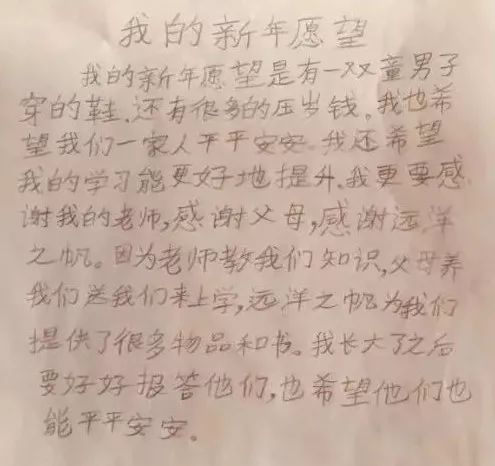 我的新年愿望
我的新年愿望是有一双童男子
穿的鞋,还有很多的压岁钱。我也希
望我们一家人平平安安。我还希望
我的学习能更好地提升、我更要感
谢我的老师,感谢父母,感谢远洋
之帆。因为老师教我们知识,父母养
我们送我们来上学,远洋之帆为我们
提供了很多物品和书。我长大了之后
要好好报答他们,也希望他们也
能平平安安。